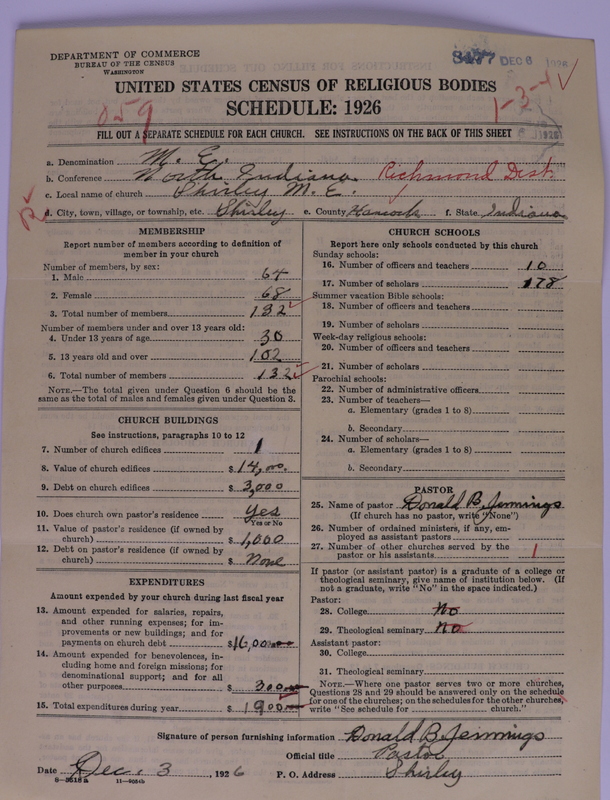 DEPARTMENT OF COMMERCE
BUREAU OF THE CENSUS
WASHINGTON
8477 DEC 6 1926
UNITED STATES CENSUS OF RELIGIOUS BODIES
SCHEDULE: 1926
059
1-3-4
FILL OUT A SEPARATE SCHEDULE FOR EACH CHURCH. SEE INSTRUCTIONS ON THE BACK OF THIS SHEET
a. Denomination M. E.
b. Conference North Indiana Richmond Dist.
c. Local name of church Shirley M. E.
R
d. City, town, village, or township, etc. Shirley e. County Hancock f. State Indiana
MEMBERSHIP
Report number of members according to definition of
member in your church
Number of members, by sex:
1. Male 64
2. Female 68
3. Total number of members 132
Number of members under and over 13 years old:
4. Under 13 years of age 30
5. 13 years old and over 102
6. Total number of members 132
NOTE.—The total given under Question 6 should be
same as the total of males and females given under Question 3.
CHURCH BUILDINGS
See instructions, paragraphs 10 to 12
7. Number of church edifices 1
8. Value of church edifices $ 14,000.
9. Debt on church edifices $ 3,000
10. Does church own pastor's residence Yes
Yes or No
11. Value of pastor's residence (if owned by
church) $ 1,000
12. Debt on pastor's residence (if owned by
church) $ None
EXPENDITURES
Amount expended by your church during last fiscal year
13. Amount expended for salaries, repairs,
and other running expenses; for im-
provements or new buildings; and for
payments on church debt $ 16,00
14. Amount expended for benevolences, in-
cluding home and foreign missions; for
denominational support; and for all
other purposes $ 300
15. Total expenditures during year $ 1900
CHURCH SCHOOLS
Report here only schools conducted by this church
Sunday schools:
16. Number of officers and teachers 10
17. Number of scholars 178
Summer vacation Bible schools:
18. Number of officers and teachers
19. Number of scholars
Week-day religious schools:
20. Number of officers and teachers
21. Number of scholars
Parochial schools:
22. Number of administrative officers
23. Number of teachers—
a. Elementary (grades 1 to 8)
b. Secondary
24. Number of scholars—
a. Elementary (grades 1 to 8)
b. Secondary
PASTOR
25. Name of pastor Donald B. Jennings
(If church has no pastor, write "None")
26. Number of ordained ministers, if any, em-
ployed as assistant pastors
27. Number of other churches served by the
pastor or his assistants 1
If pastor (or assistant pastor) is a graduate of a college or
theological seminary, give name of institution below. (If
not a graduate, write "No" in the space indicated.)
Pastor:
28. College No
29. Theological seminary No
Assistant pastor:
30. College
31. Theological seminary
NOTE.—Where one pastor serves two or more churches,
Questions 28 and 29 should be answered only on the schedule
for one of the churches; on the schedules for the other churches,
write "See schedule for church."
Signature of person furnishing information Donald B. Jennings
Official title Pastor
Date Dec. 3, 1926 P. O. Address Shirley